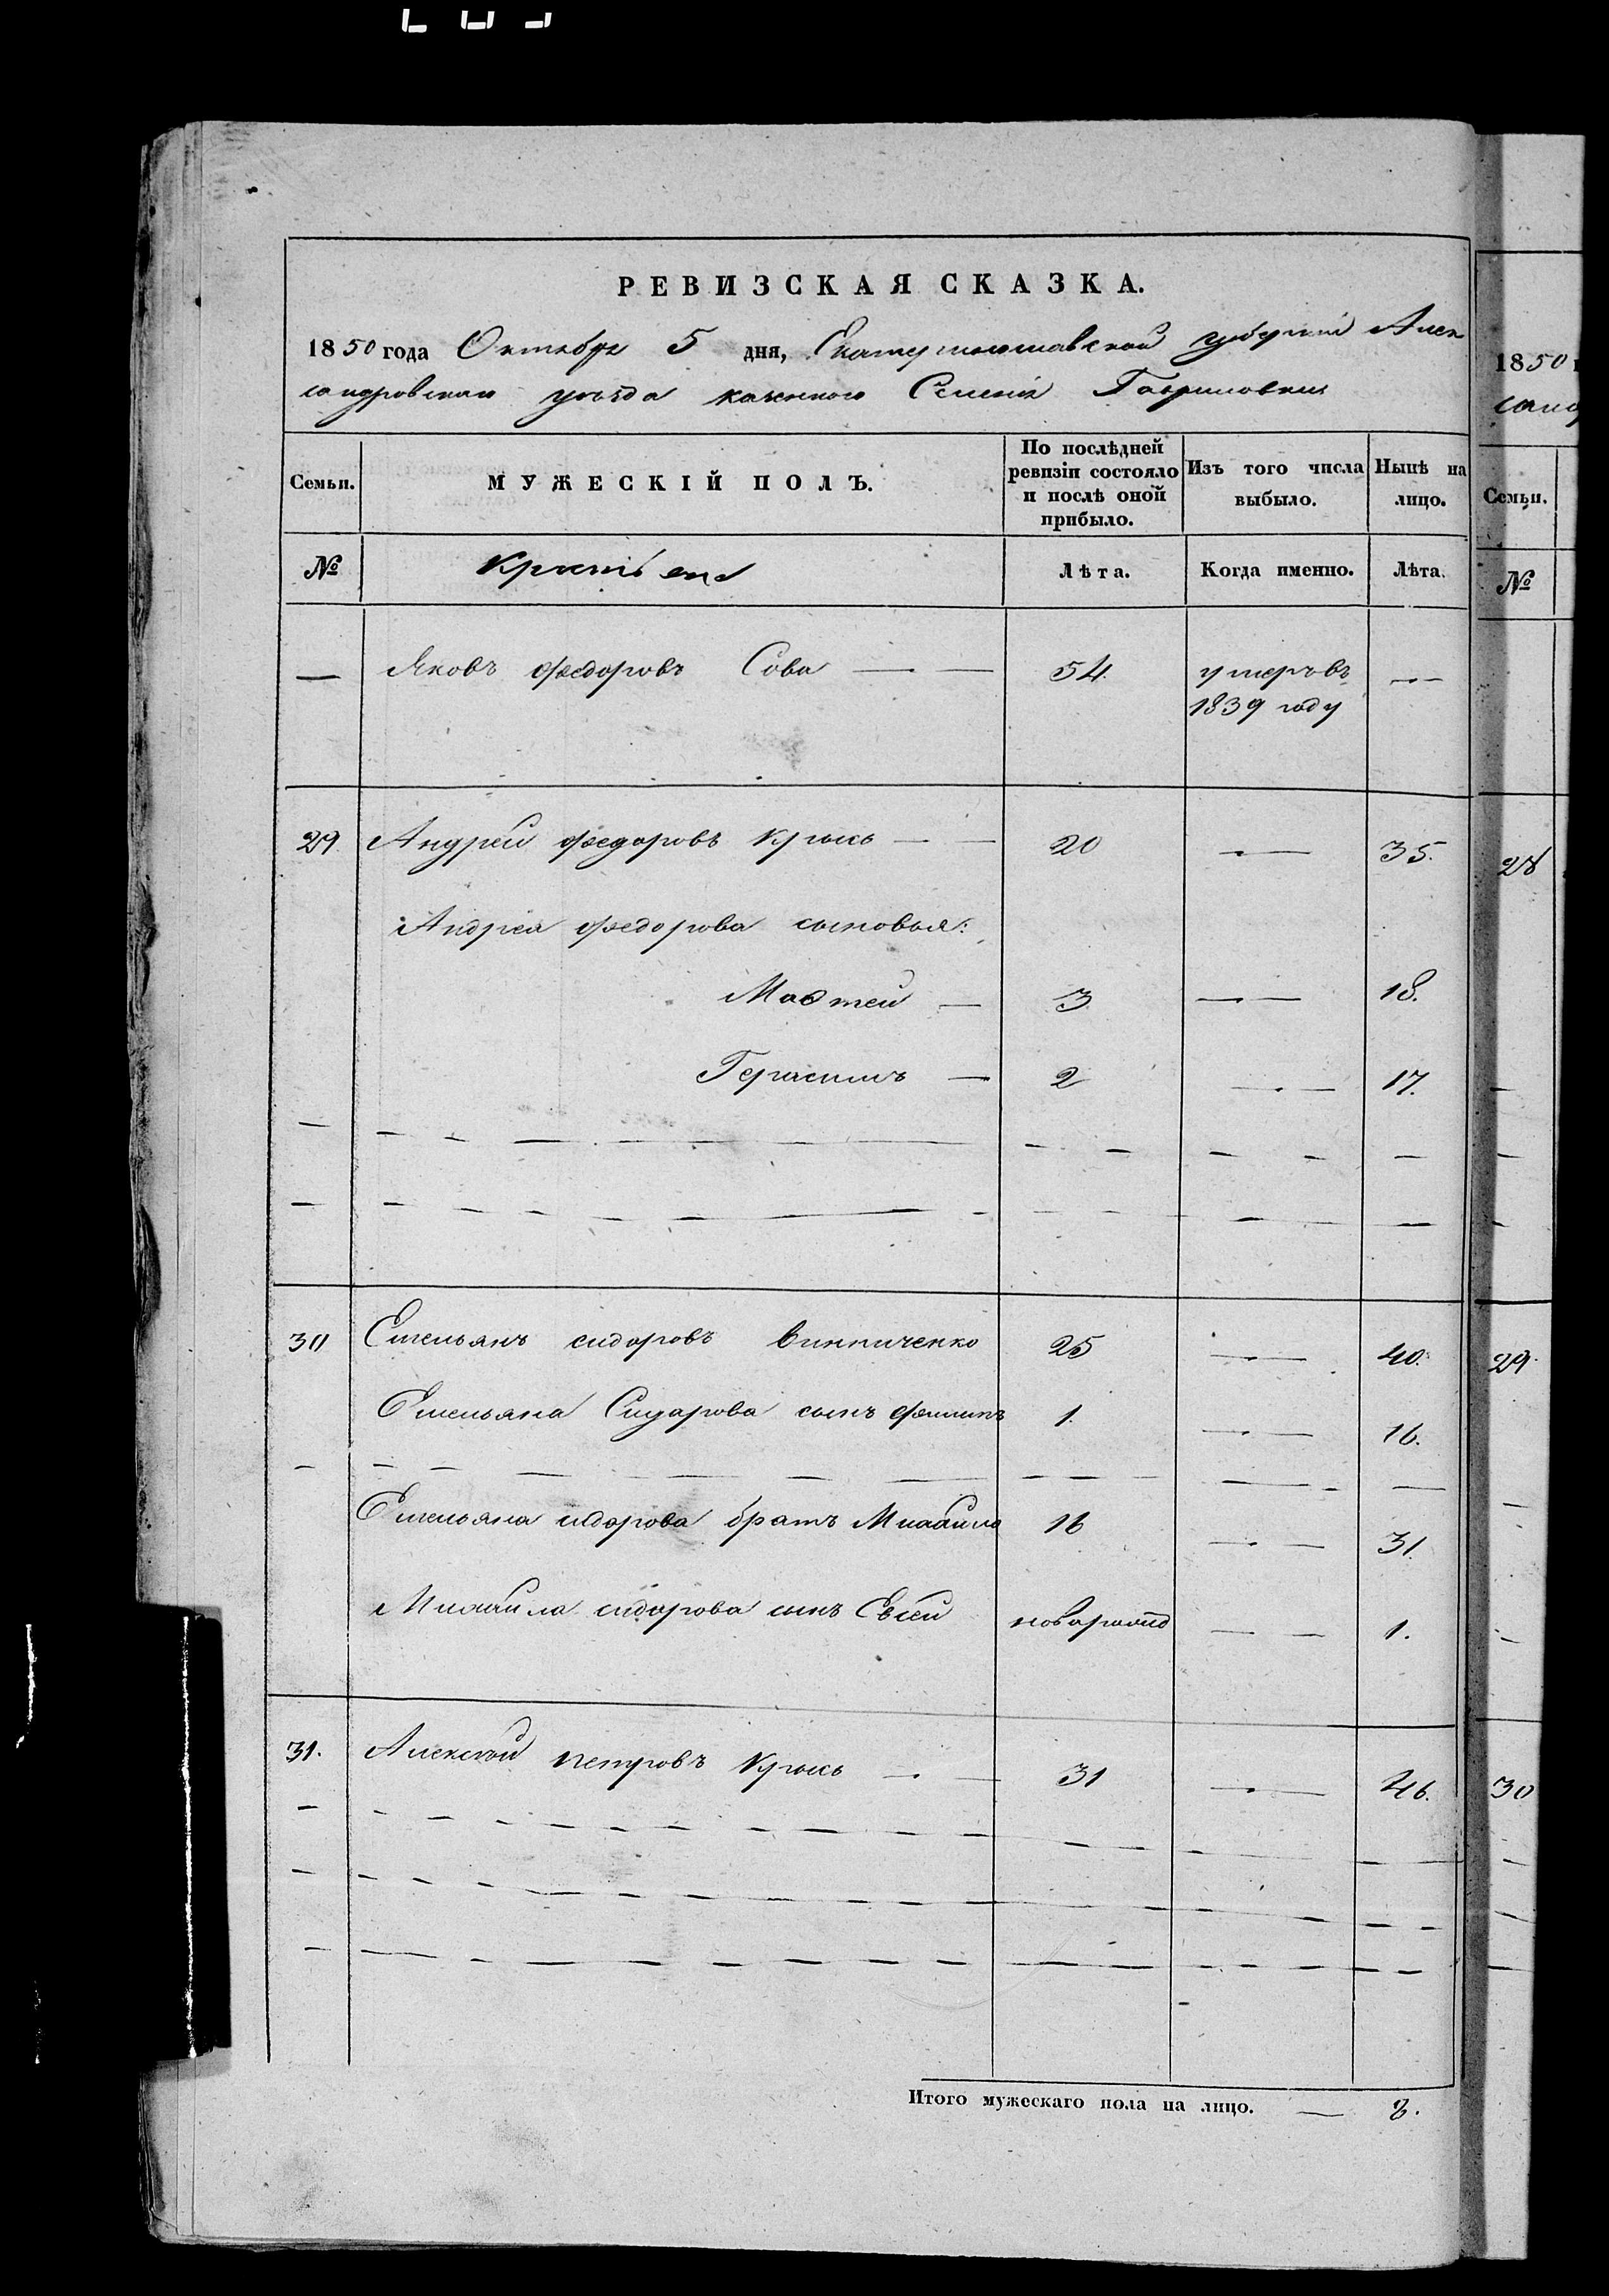 РЕВИЗСКАЯ СКАЗКА.
1850 года Октября 5 дня, Екатеринославской губернии Алек
сандровскаго уезда казеннаго Селения Гавриловки
Семьи. МУЖЕСКІЙ ПОЛЪ. По послѣдней ревизіи состояло и послѣ оной прибыло. Изъ того числа выбыло. Нынѣ на лицо.
№ Лѣта. Когда именно. Лѣта.
— Яковъ Федоровъ Сова — — 54. умеръ въ 1839 году —
29 Андрей Федоровъ Крысь — — 20 — 35.
Андрея Федорова сыновья:
Матвей — 3 — 18.
Герасимъ — 2 — 17.
30 Емельянъ Сидоровъ Винниченко 25 — 40.
Емельяна Сидорова сынъ 1. — 16.
Емельяна Сидорова братъ Михайла 16 — 31.
Михайла Сидорова сынъ Евсей — 1.
31. Алексей Петровъ Крысь — 31 — 46.
Итого мужескаго пола на лицо. — 8.
1850
санд
Семьи.
№
28
29
30